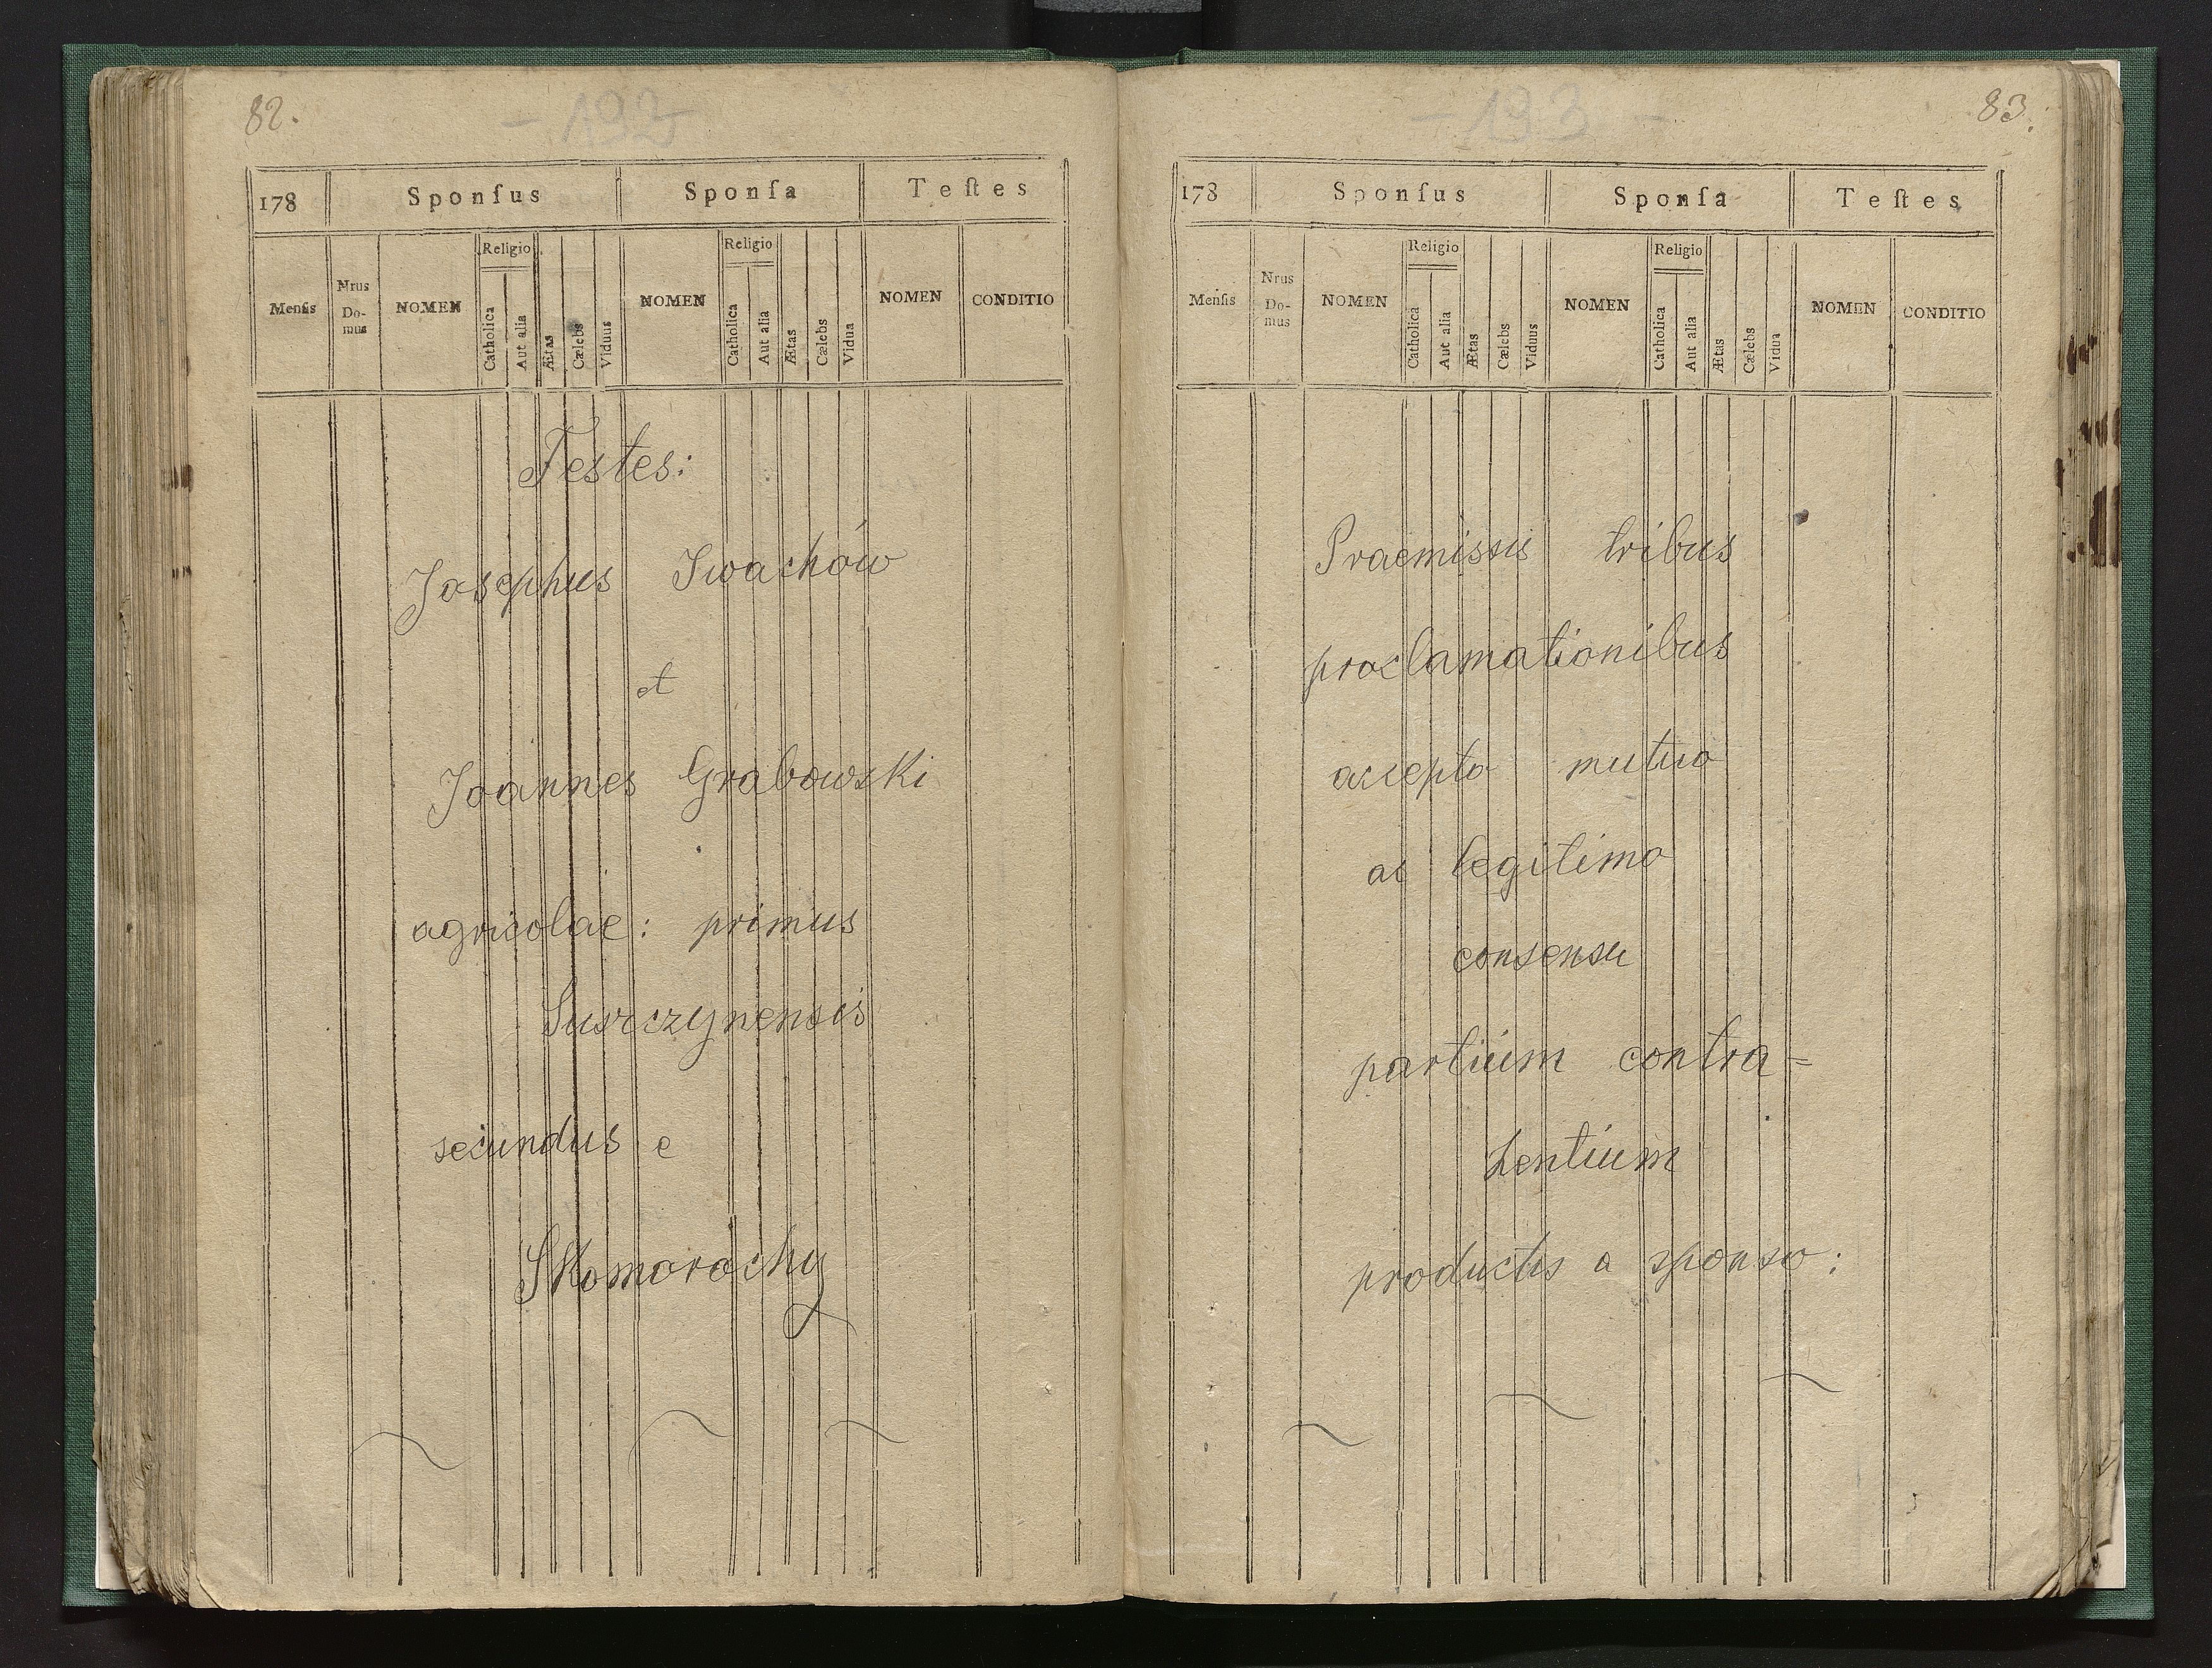 82.
- 192 -
178
Sponſus
Sponſa
Teſtes
Menſis
Nrus Do-mus
NOMEN
Religio
Catholica
Aut alia
Ætas
Cælebs
Viduus
NOMEN
Religio
Catholica
Aut alia
Ætas
Cælebs
Vidua
NOMEN
CONDITIO
Testes:
Josephus Iwachów
et
Joannes Grabowski
agricolae: primus
secundus e
Skomorochy
83.
- 193 -
178
Sponſus
Sponſa
Teſtes
Menſis
Nrus Do-mus
NOMEN
Religio
Catholica
Aut alia
Ætas
Cælebs
Viduus
NOMEN
Religio
Catholica
Aut alia
Ætas
Cælebs
Vidua
NOMEN
CONDITIO
Praemissis tribus
proclamationibus
accepto mutuo
ac legitimo
consensu
partium contra=
hentium
productis a sponso: